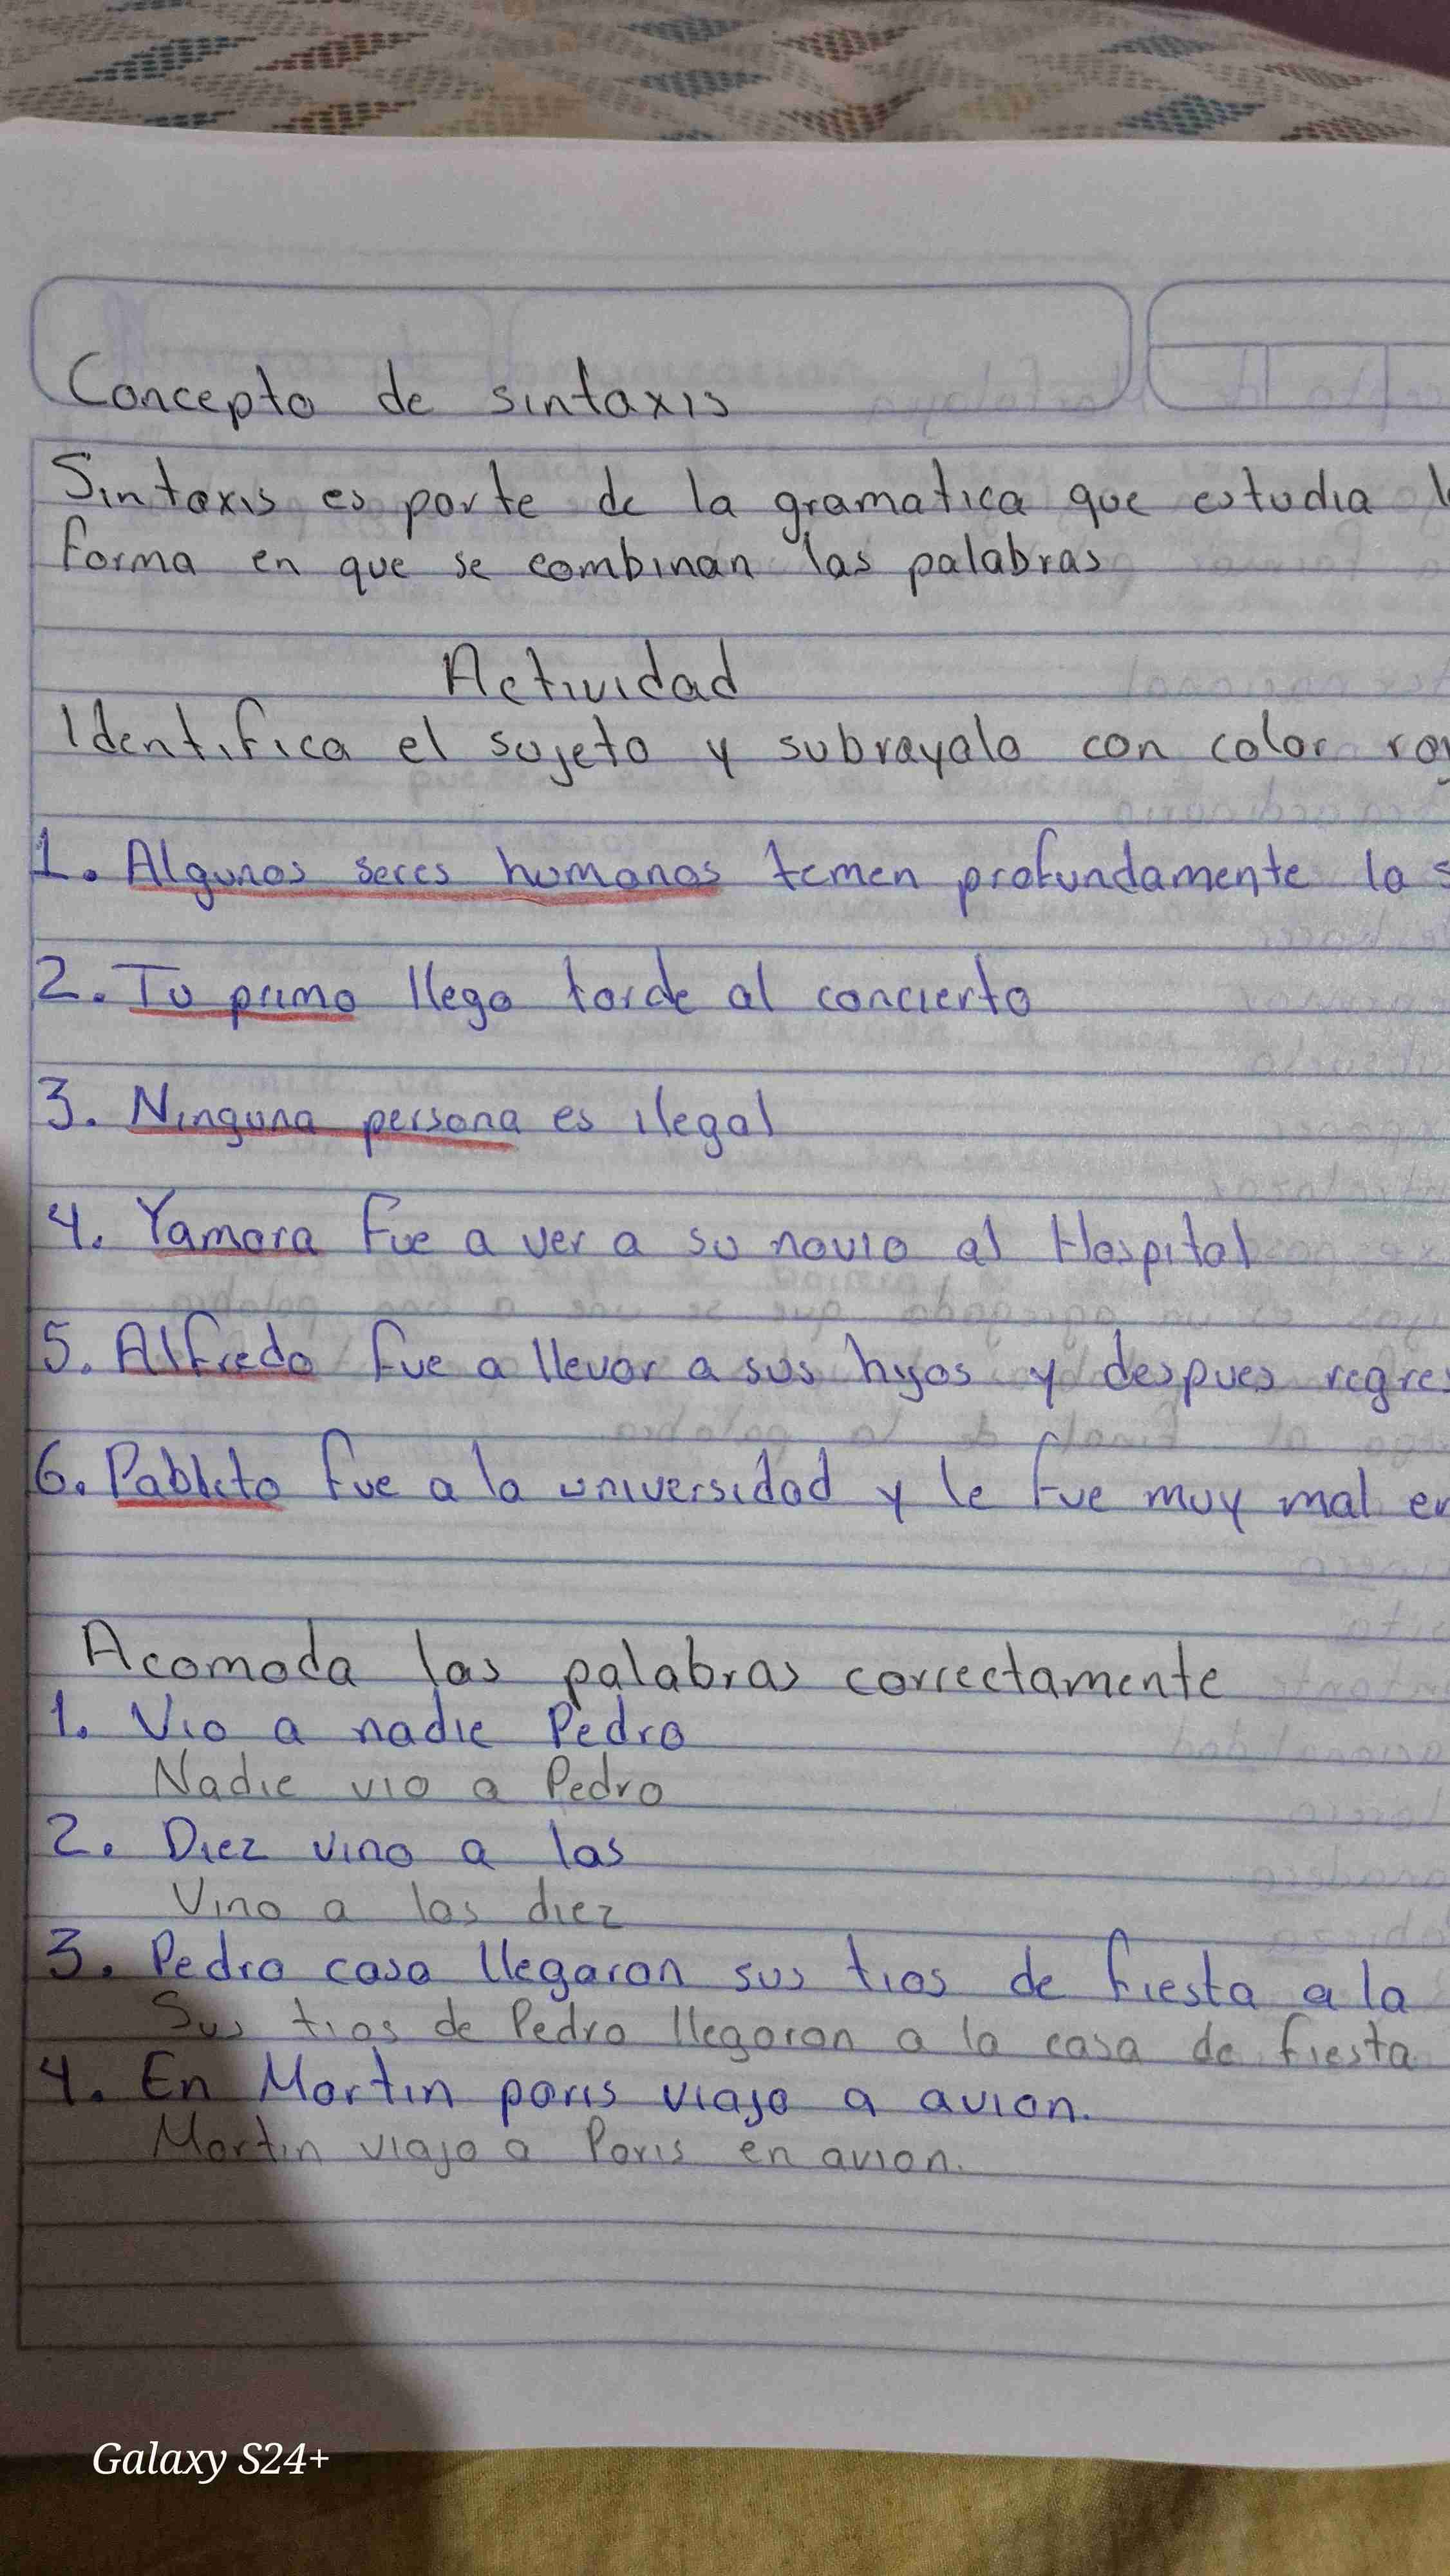 Concepto de sintaxis
Sintaxis es parte de la gramatica que estudia l
forma en que se combinan las palabras
Actividad
Identifica el sujeto y subrayalo con color roj
1. Algunos seres humanos temen profundamente la s
2. Tu primo llego tarde al concierto
3. Ninguna persona es ilegal
4. Yamara fue a ver a su novio al Hospital
5. Alfredo fue a llevar a sus hijos y despues regres
6. Pablito fue a la universidad y le fue muy mal en
Acomoda las palabras correctamente
1. Vio a nadie Pedro
Nadie vio a Pedro
2. Diez vino a las
Vino a las diez
3. Pedro casa llegaron sus tios de fiesta a la
Sus tios de Pedro llegaron a la casa de fiesta
4. En Martin paris viajo a avion.
Martin viajo a Paris en avion.
Galaxy S24+